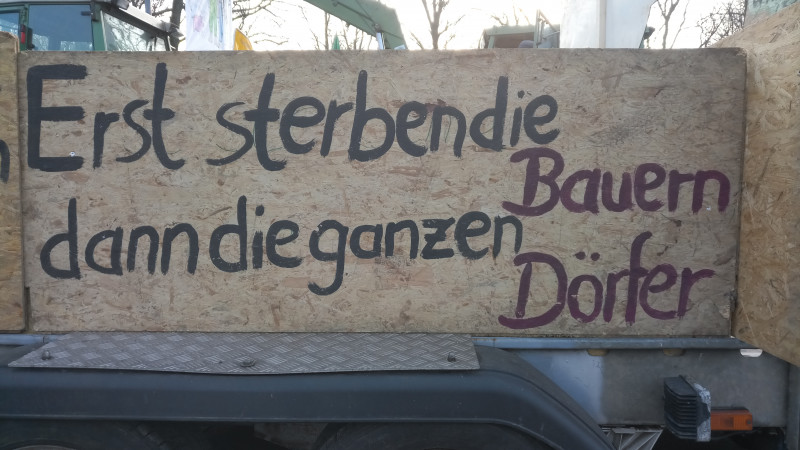 Erst sterben die Bauern
dann die ganzen Dörfer